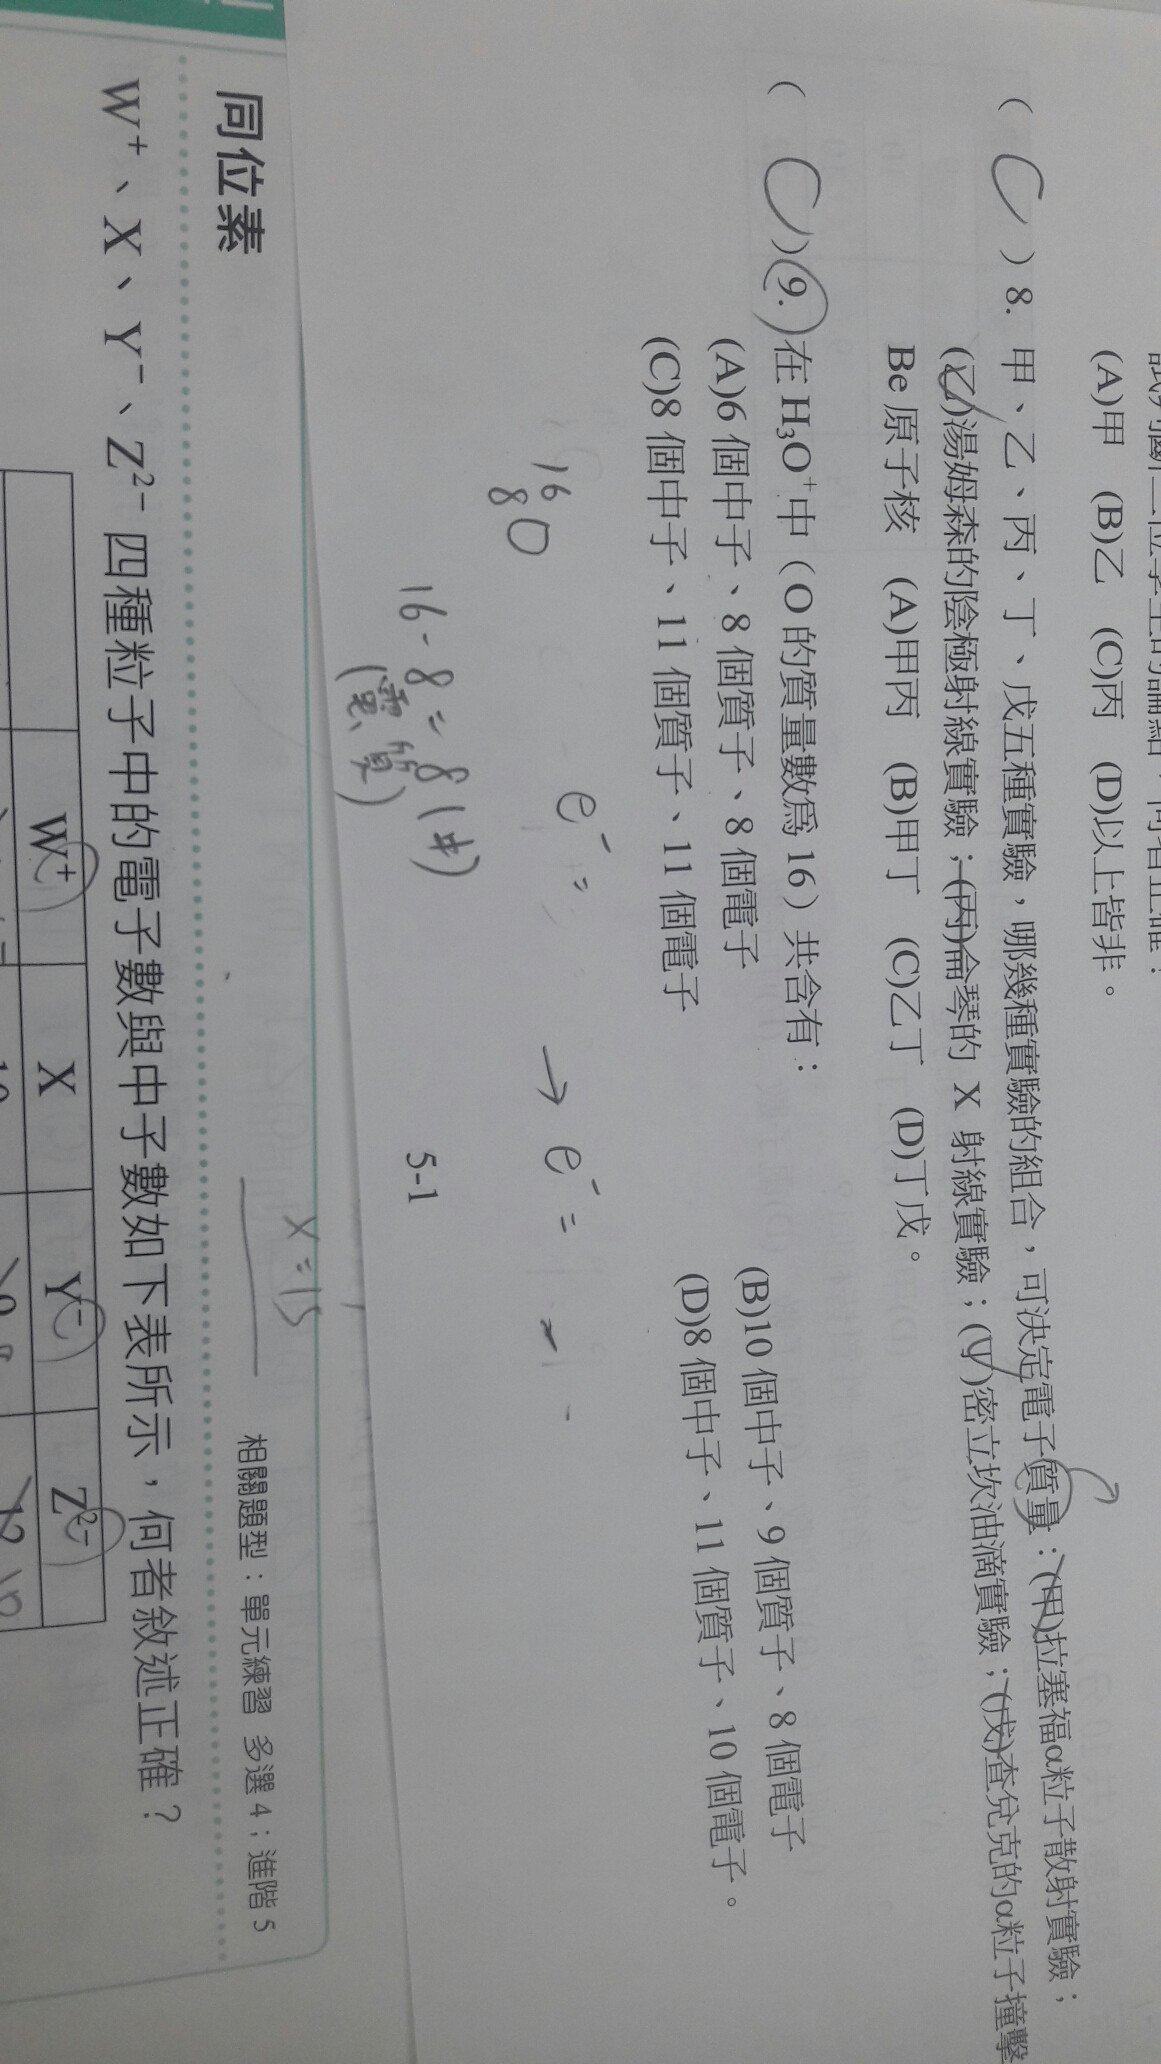 (A)甲 (B)乙 (C)丙 (D)以上皆非。
( C ) 8. 甲、乙、丙、丁、戊五種實驗，哪幾種實驗的組合，可決定電子質量：(甲)拉塞福α粒子散射實驗；
(乙)湯姆森的陰極射線實驗；(丙)侖琴的 X 射線實驗；(丁)密立坎油滴實驗；(戊)查兌克的α粒子撞擊
Be 原子核 (A)甲丙 (B)甲丁 (C)乙丁 (D)丁戊。
( C ) 9. 在 H₃O⁺中（O 的質量數為 16）共含有：
(A)6 個中子、8 個質子、8 個電子 (B)10 個中子、9 個質子、8 個電子
(C)8 個中子、11 個質子、11 個電子 (D)8 個中子、11 個質子、10 個電子。
e⁻ =
¹⁶₈O → e⁻ =
16-8=8(中)
5-1
x=15
同位素 相關題型：單元練習 多選 4；進階 5
W⁺、X、Y⁻、Z²⁻ 四種粒子中的電子數與中子數如下表所示，何者敘述正確？
W⁺ X Y⁻ Z²⁻